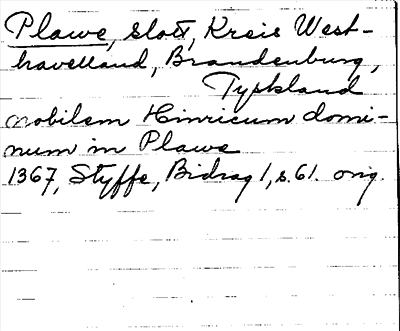 Plawe, slott, Kreis West-
havelland, Brandenburg,
Tyskland
nobilem Hinricum domi-
num in Plawe
1367, Styffe, Bidrag 1, s. 61. orig.